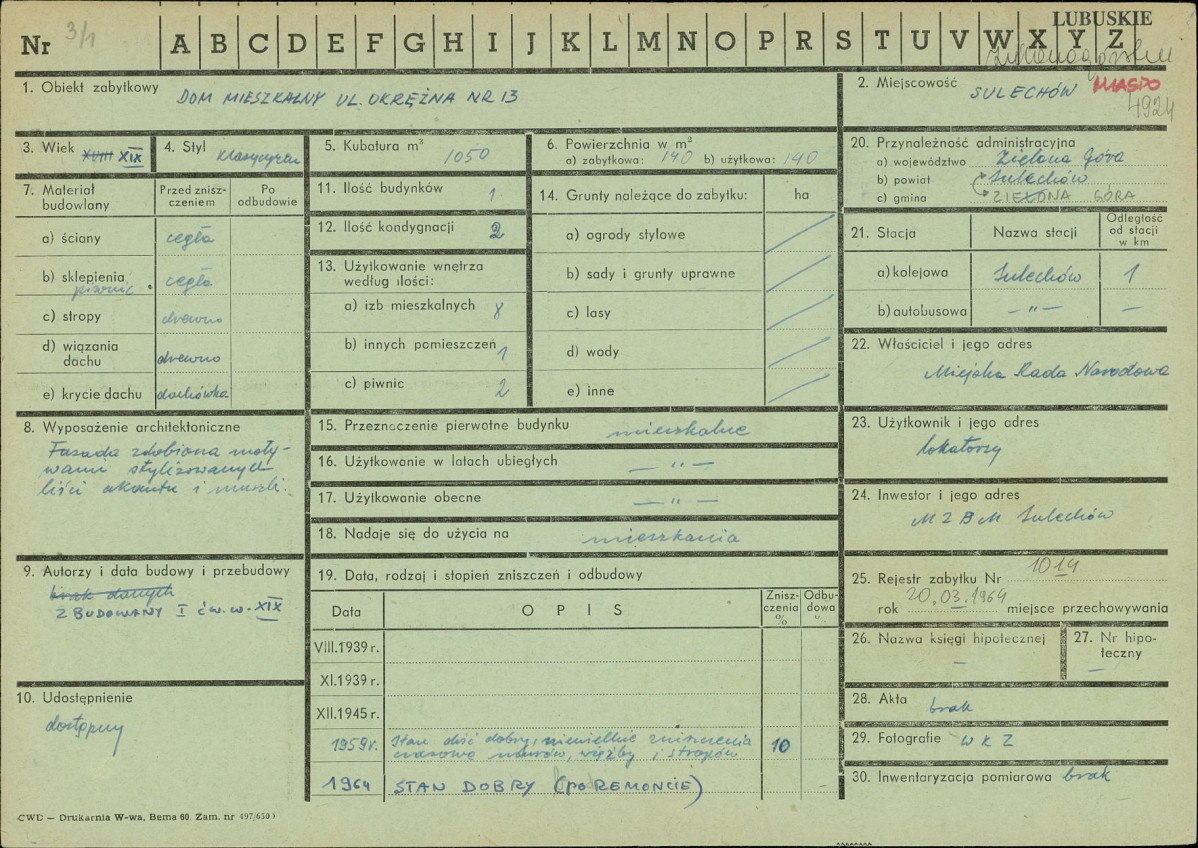 LUBUSKIE
Nr 3/1 A B C D E F G H I J K L M N O P R S T U V W X Y Z
1. Obiekt zabytkowy DOM MIESZKALNY UL. OKRĘŻNA NR 13
2. Miejscowość SULECHÓW MIASTO
4924
3. Wiek XVIII XIX
4. Styl klasycyzm
5. Kubatura m³ 1050
6. Powierzchnia w m²
a) zabytkowa: 140 b) użytkowa: 140
20. Przynależność administracyjna
a) województwo Zielona Góra
b) powiat Sulechów
c) gmina ZIELONA GÓRA
7. Materiał budowlany
Przed zniszczeniem
Po odbudowie
a) ściany cegła
b) sklepienia piwnic cegła
c) stropy drewno
d) wiązania dachu drewno
e) krycie dachu dachówka
11. Ilość budynków 1
12. Ilość kondygnacji 2
13. Użytkowanie wnętrza
według ilości:
a) izb mieszkalnych 8
b) innych pomieszczeń 1
c) piwnic 2
14. Grunty należące do zabytku: ha
a) ogrody stylowe
b) sady i grunty uprawne
c) lasy
d) wody
e) inne
21. Stacja
Nazwa stacji
Odległość
od stacji
w km
a) kolejowa Sulechów 1
b) autobusowa — " — —
22. Właściciel i jego adres
Miejska Rada Narodowa
8. Wyposażenie architektoniczne
Fasada zdobiona moty-
wami stylizowanych
liści akantu i muszli.
15. Przeznaczenie pierwotne budynku mieszkalne
16. Użytkowanie w latach ubiegłych — " —
17. Użytkowanie obecne — " —
18. Nadaje się do użycia na mieszkania
23. Użytkownik i jego adres
lokatorzy
24. Inwestor i jego adres
MZBM Sulechów
9. Autorzy i data budowy i przebudowy
brak danych
ZBUDOWANY I ćw. w. XIX
19. Data, rodzaj i stopień zniszczeń i odbudowy
Data
OPIS
Znisz-
czenia
%
Odbu-
dowa
%
VIII.1939 r.
XI.1939 r.
XII.1945 r.
1959 r. Stan dość dobry, niewielkie zniszczenia 10
murów, więźby i stropów
1964 STAN DOBRY (PO REMONCIE) —
25. Rejestr zabytku Nr 1014
rok 20.03.1964 miejsce przechowywania
26. Nazwa księgi hipotecznej
—
27. Nr hipo-
teczny
—
10. Udostępnienie
dostępny
28. Akta brak
29. Fotografie WKZ
30. Inwentaryzacja pomiarowa brak
CWD — Drukarnia W-wa, Bema 60. Zam. nr 497/650